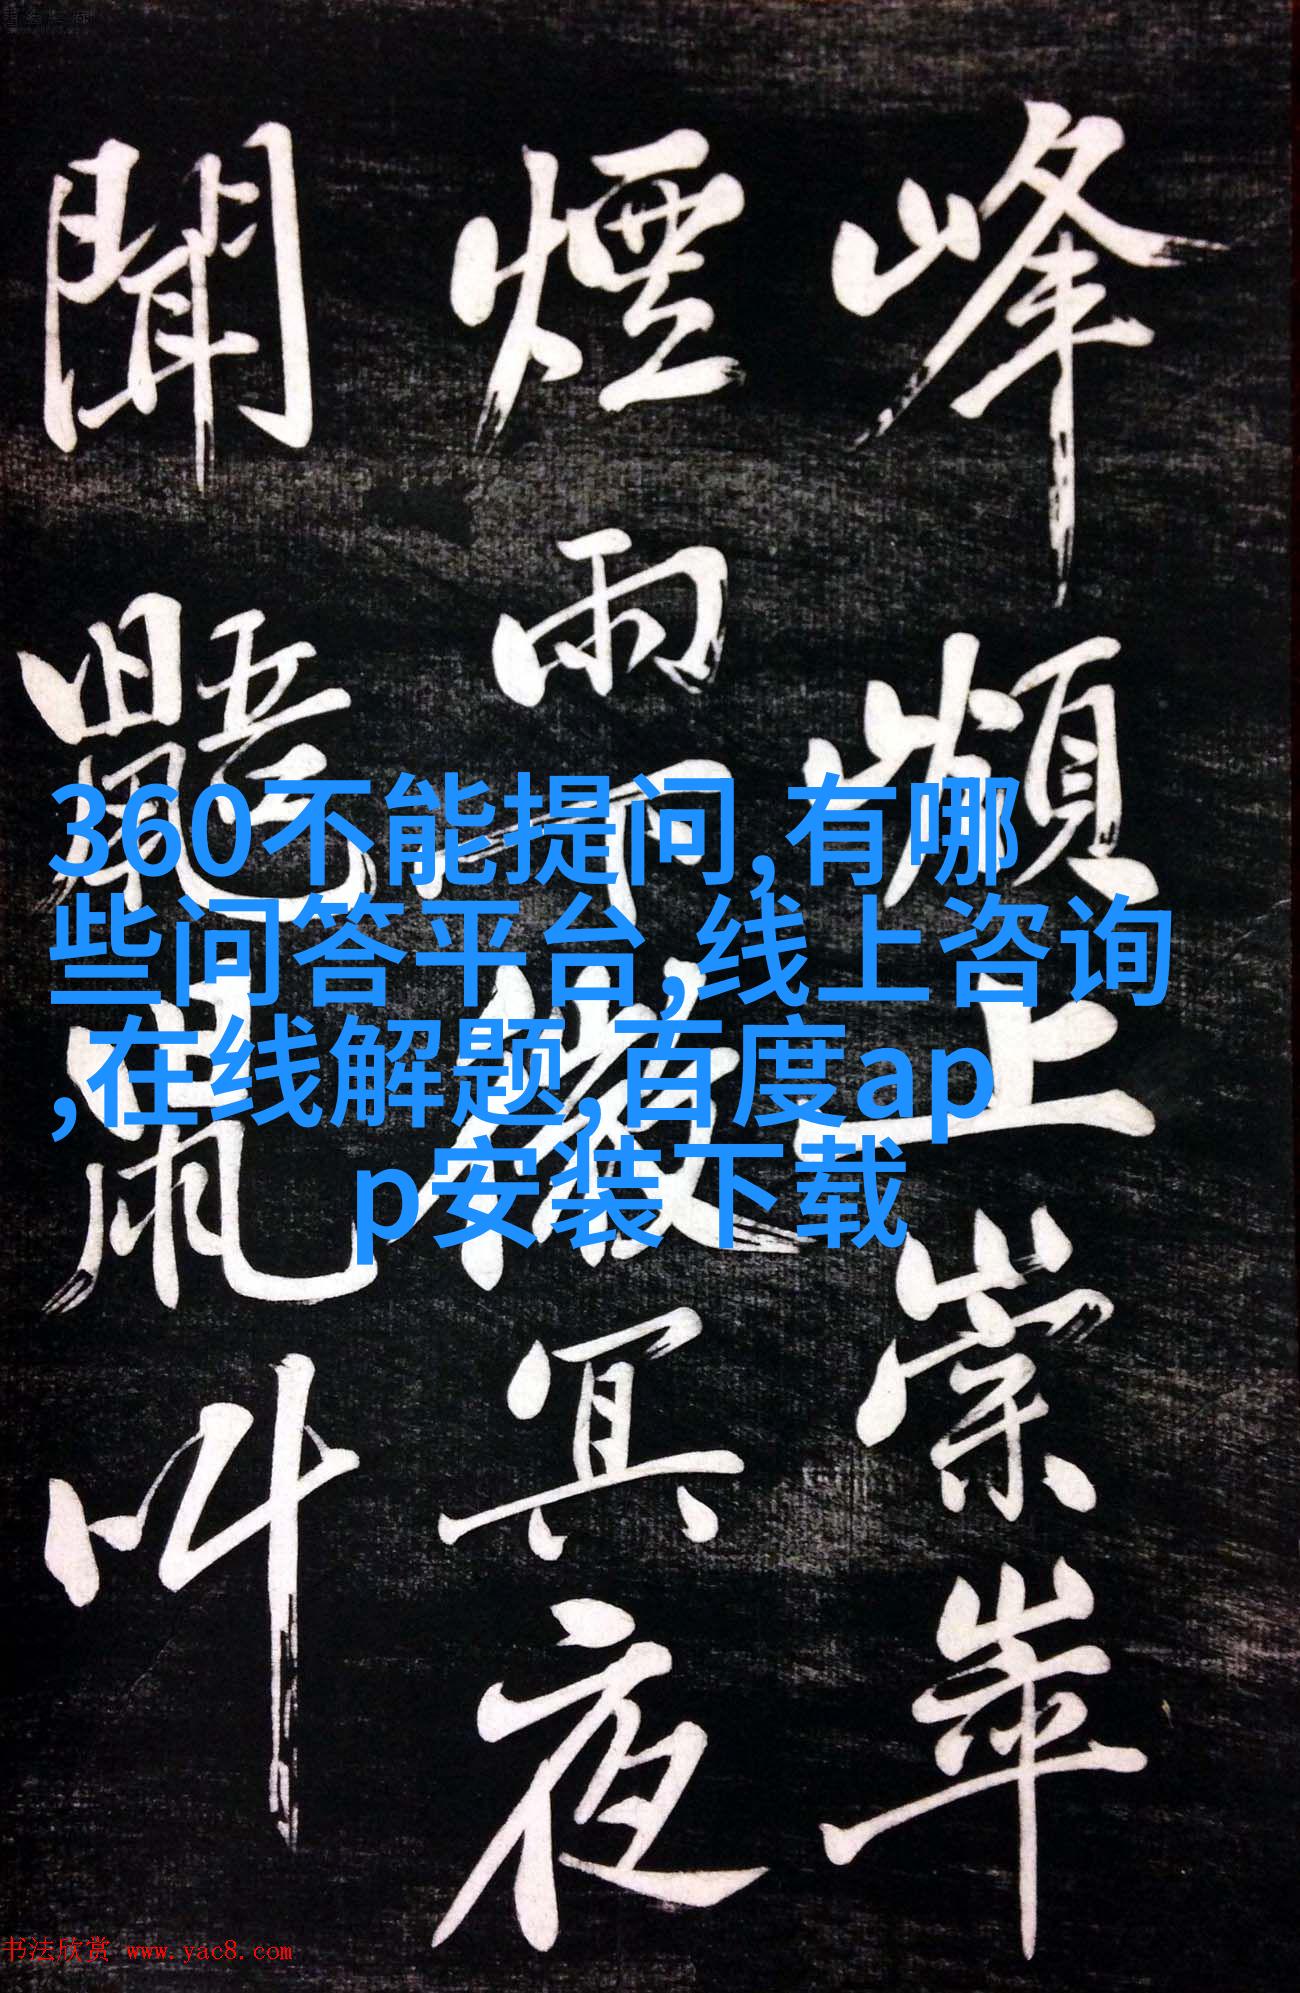 峰頻上崇崒
煙雨下微冥夜
聞鼯鼠叫
360不能提问,有哪
些问答平台,线上咨询
,在线解题,百度ap
p安装下载
书法欣赏 www.yac8.com